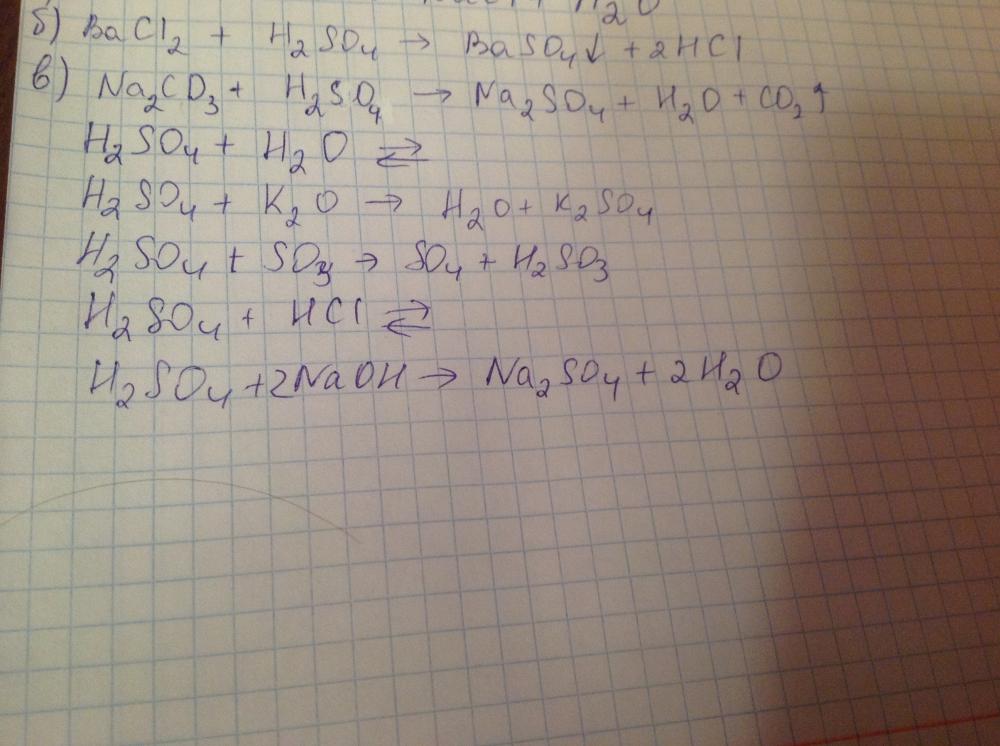 H₂O
б) BaCl₂ + H₂SO₄ → BaSO₄↓ + 2HCl
в) Na₂CO₃ + H₂SO₄ → Na₂SO₄ + H₂O + CO₂↑
H₂SO₄ + H₂O ⇄
H₂SO₄ + K₂O → H₂O + K₂SO₄
H₂SO₄ + SO₃ → SO₄ + H₂SO₃
H₂SO₄ + HCl ⇄
H₂SO₄ + 2NaOH → Na₂SO₄ + 2H₂O